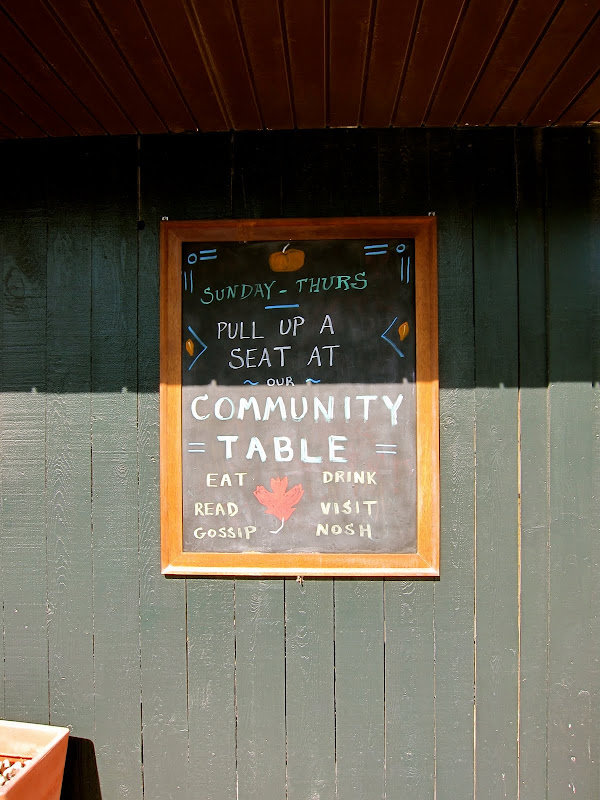 SUNDAY - THURS
PULL UP A
SEAT AT
~ OUR ~
COMMUNITY
= TABLE =
EAT DRINK
READ VISIT
GOSSIP NOSH